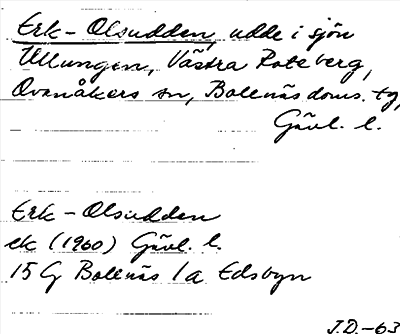 Erk-Olsudden, udde i sjön
Ullungen, Västra Roteberg,
Ovanåkers sn, Bollnäs doms. tg,
Gävl. l.
Erk-Olsudden
ek (1960) Gävl. l.
15 G Bollnäs 1a Edsbyn
J.D.-63